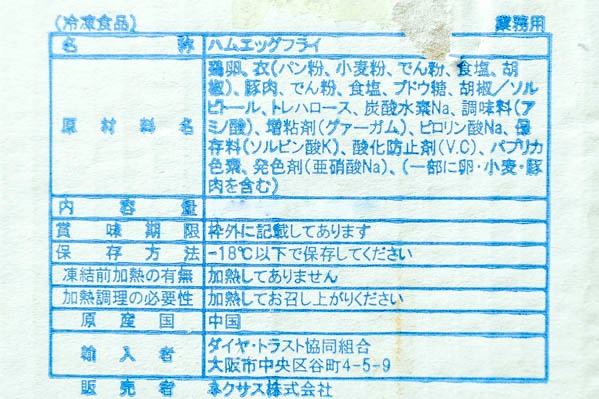 (冷凍食品) 業務用
名称 ハムエッグフライ
原材料名 鶏卵、衣(パン粉、小麦粉、でん粉、食塩、胡
椒)、豚肉、でん粉、食塩、ブドウ糖、胡椒/ソル
ビトール、トレハロース、炭酸水素Na、調味料(ア
ミノ酸)、増粘剤(グァーガム)、ピロリン酸Na、保
存料(ソルビン酸K)、酸化防止剤(V.C)、パプリカ
色素、発色剤(亜硝酸Na)、(一部に卵・小麦・豚
肉を含む)
内容量
賞味期限 枠外に記載してあります
保存方法 -18℃以下で保存してください
凍結前加熱の有無 加熱してありません
加熱調理の必要性 加熱してお召し上がりください
原産国 中国
輸入者 ダイヤ・トラスト協同組合
大阪市中央区谷町4-5-9
販売者 ネクサス株式会社